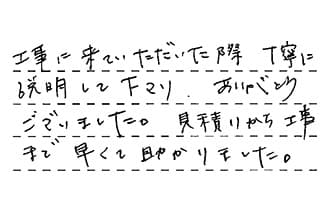 工事に来ていただいた際 丁寧に
説明して下さり、ありがとう
ございました。 見積りから工事
まで 早くて助かりました。